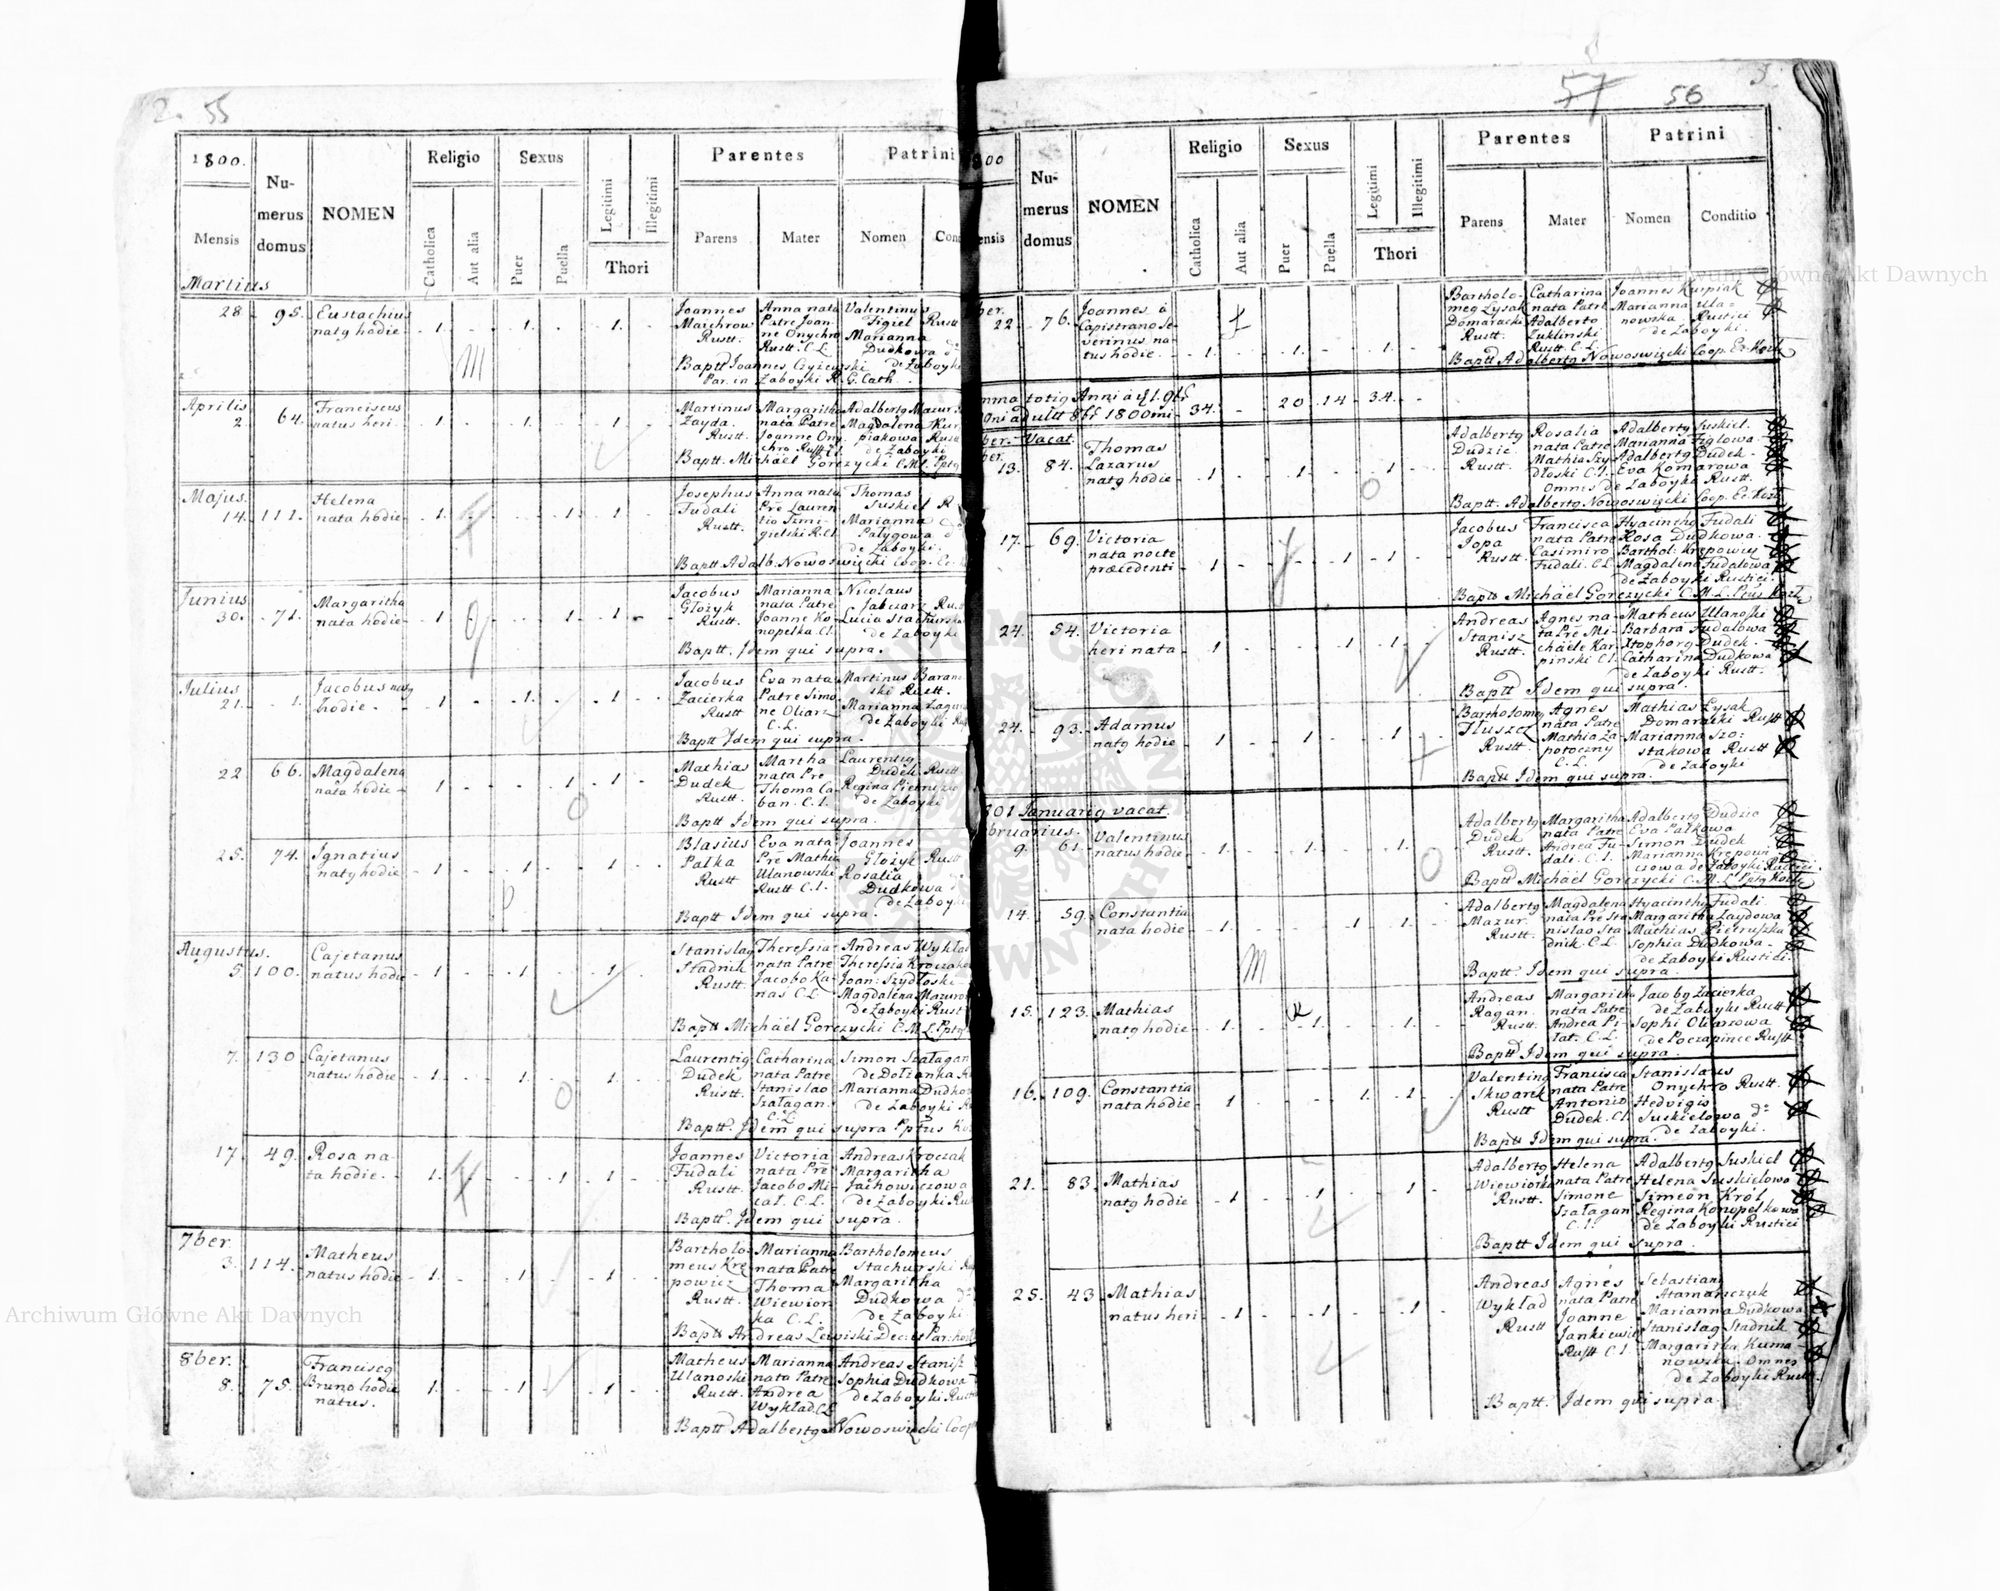 2. 55
1800.
Numerus domus
NOMEN
Religio
Sexus
Parentes
Patrini
Mensis
Catholica
Aut alia
Puer
Puella
Legitimi
Illegitimi
Thori
Parens
Mater
Nomen
Martius
28 95. Eustachius Joannes Anna nata Valentinus
natg hodie 1. 1. 1. Marchrow Patre Joan- Figiel Rustt
Rustt. ne Onychro Marianna
Rustt. C.L. Dudkowa
Baptt Joannes Czyżewski de Zaboyki
Par. in Zaboyki R. G. Cath.
Aprilis Franciscus Martinus Margaritha Adalbertg Mazur
2 64. natus heri. 1 1 1 Zayda. nata Patre Magdalena Kur
Rustt. Joanne Ony piakowa Rustt
chro Rustt. de Zaboyki
Baptt. Michäel Gorczycki C.M.L.
Majus. Helena Josephus Anna nata Thomas
14. 111. nata hodie 1. 1. 1 Fudali Pre Lauren Suskiel R
Rustt. tio Szmi- Marianna
gielski R.Cl. Palygowa
de Zaboyki.
Baptt. Adalb. Nowoswięcki Coop.
Junius Margaritha Jacobus Marianna Nicolaus
30. 71. nata hodie 1 1 1 Głożyk nata Patre Jabczarz
Rustt. Joanne Ko- Lucia Stachurska
nopelka Cl. de Zaboyki
Baptt. Idem qui supra.
Julius Jacobus natg Jacobus Eva nata Martinus Baran
21. 1. hodie. 1 1. 1 Zacierka Patre Simo- ski Rustt.
Rustt ne Oliarz Marianna
C.L. de Zaboyki
Baptt Idem qui supra.
22 66. Magdalena Mathias Martha Laurentig
nata hodie 1 1 1 Dudek nata Pre Dudek Rustt
Rustt. Thoma Ca- Regina
ban. C.L. de Zaboyki
Baptt Idem qui supra.
25. 74. Ignatius Blasius Eva nata Joannes
natg hodie 1 1 1 Palka Pre Mathia Głożyk Rustt
Rustt Ulanowski Rosalia
Rustt C.L. Dudkowa
de Zaboyki
Baptt Idem qui supra.
Augustus. Cajetanus Stanislag Theressia Andreas Wykład
5. 100. natus hodie 1 1 1 Stadnik nata Patre Theressia
Rustt. Jacobo Ka- Joan: Szydłoski
nas C.L. Magdalena
de Zaboyki Rust
Baptt Michäel Gorczycki C.M.L.
7. 130 Cajetanus Laurentig Catharina Simon Szałagan
natus hodie 1. 1 1 Dudek nata Patre de Dołżanka
Rustt. Stanislao Marianna
Szałagan. de Zaboyki
C.L.
Baptt. Idem qui supra
17. 49. Rosa na- Joannes Victoria Andreas Kroczak
ta hodie. 1. 1 1 Fudali nata Pre Margaritha
Rustt. Jacobo Mi- Jachowiczowa
cał. C.L. de Zaboyki
Baptt. Idem qui supra.
7ber Matheus Bartholo- Marianna Bartholomeus
3. 114. natus hodie 1. 1 1 meus Krę- nata Patre Stachurski
powicz Thoma Margaritha
Rustt. Wiewior- Dudkowa
ka C.L. de Zaboyki
Baptt Andreas Lewiski Dec:
8ber. Franciscg Matheus Marianna Andreas Stanisz
8. 75. Bruno hodie 1. 1 1 Ulanoski nata Patre Sophia Dudkowa
natus. Rustt. Andrea de Zaboyki
Wykład. C.L
Baptt Adalbertg Nowoswięcki Coop
57 56
3
Numerus domus
NOMEN
Religio
Sexus
Parentes
Patrini
Catholica
Aut alia
Puer
Puella
Legitimi
Illegitimi
Thori
Parens
Mater
Nomen
Conditio
ber. Joannes á Bartholo- Catharina Joannes Kurpiak
22. 76. Capistrano Se- meg Łysak nata Patre Marianna Ula-
verinus na- Domaracki Adalberto nowska. Rustici
tus hodie. 1. 1. 1. Rustt. Luklinski de Zaboyki.
Rustt C.L.
Baptt Adalbertg Nowoswięcki Coop.
34. 20 14 34.
1800
Vacat
13. 84. Thomas Adalbertg Rosalia Adalbertg Suskiel.
Lazarus Dudzic nata Patre Marianna Figlowa
natg hodie 1 1 1 Rustt. Mathia Szy- Adalbertg Dudek
dłoski C.L. Eva Komarowa
Omnes de Zaboyki Rustt.
Baptt. Adalbertg Nowoswięcki Coop.
17. 69. Victoria Jacobus Francisca Hyacinthg Fudali
nata nocte Jopa nata Patre Rosa Dudkowa.
præcedenti 1 1 1 Rustt. Casimiro Barthol: Krępowicz
Fudali. C.L. Magdalena Fudalowa
de Zaboyki Rustici.
Baptt Michäel Gorczycki C.M.L.
24. 54. Victoria Andreas Agnes na- Matheus Ulanoski
heri nata 1 1 1 Stanisz ta Pre Mi- Barbara Fudalowa
Rustt. chäele Kar- Xtophorg Dudek
pinski C.L. Catharina Dudkowa
de Zaboyki Rustt.
Baptt Idem qui supra.
24. 93. Adamus Bartholomeg Agnes Mathias Łysak
natg hodie 1 1 1 Tłuszcz nata Patre Domaracki Rustt
Rustt. Mathia Za- Marianna Szo-
potoczny stakowa Rustt
C.L. de Zaboyki
Baptt Idem qui supra.
Januarig vacat.
9. 61. Valentinus Adalbertg Margaritha Adalbertg Dudzic
natus hodie 1 1 1. Dudek nata Patre Eva Palkowa
Rustt. Andrea Fu- Simon Dudek
dali. C.L. Marianna Krępowi-
czowa de Zaboyki
Baptt Michäel Gorczycki C.M.L.
14. 59. Constantia Adalbertg Magdalena Hyacinthg Fudali.
nata hodie 1. 1. 1. Mazur. nata Pre Sta- Margaritha Zaydowa
Rustt. nislao Sta- Mathias Pietruszka
dnik. C.L. Sophia Dudkowa
de Zaboyki Rustici.
Baptt. Idem qui supra.
15. 123. Mathias Andreas Margaritha Jacobg Zacierka
natg hodie 1. 1. 1. Ragan. nata Patre de Zaboyki Rustt
Rustt. Andrea Pi- Sophi Oliarzowa
łat. C.L. de Poczapince Rustt
Baptt Idem qui supra.
16. 109. Constantia Valenting Francisca Stanislaus
nata hodie 1 1 1 Skwarek nata Patre Onychro Rustt.
Rustt Antonio Hedvigis
Dudek. Cl. Suskielowa
de Zaboyki.
Baptt Idem qui supra.
21. 83. Mathias Adalbertg Helena Adalbertg Suskiel
natg hodie 1 1 1 Wiewiorka nata Patre Helena Suskielowa
Rustt. Simone Simeon Król
Szałagan Regina Konopelkowa
C.L. de Zaboyki Rustici
Baptt Idem qui supra.
25. 43. Mathias Andreas Agnes Sebastiang
natus heri 1 1 1 Wykład nata Patre Atamańczuk
Rustt Joanne Marianna Dudkowa
Jankiewicz Stanislag Stadnik
Rustt C.L. Margaritha Kuma-
nowska. Omnes
de Zaboyki
Baptt. Idem qui supra.
Archiwum Główne Akt Dawnych
Archiwum Główne Akt Dawnych